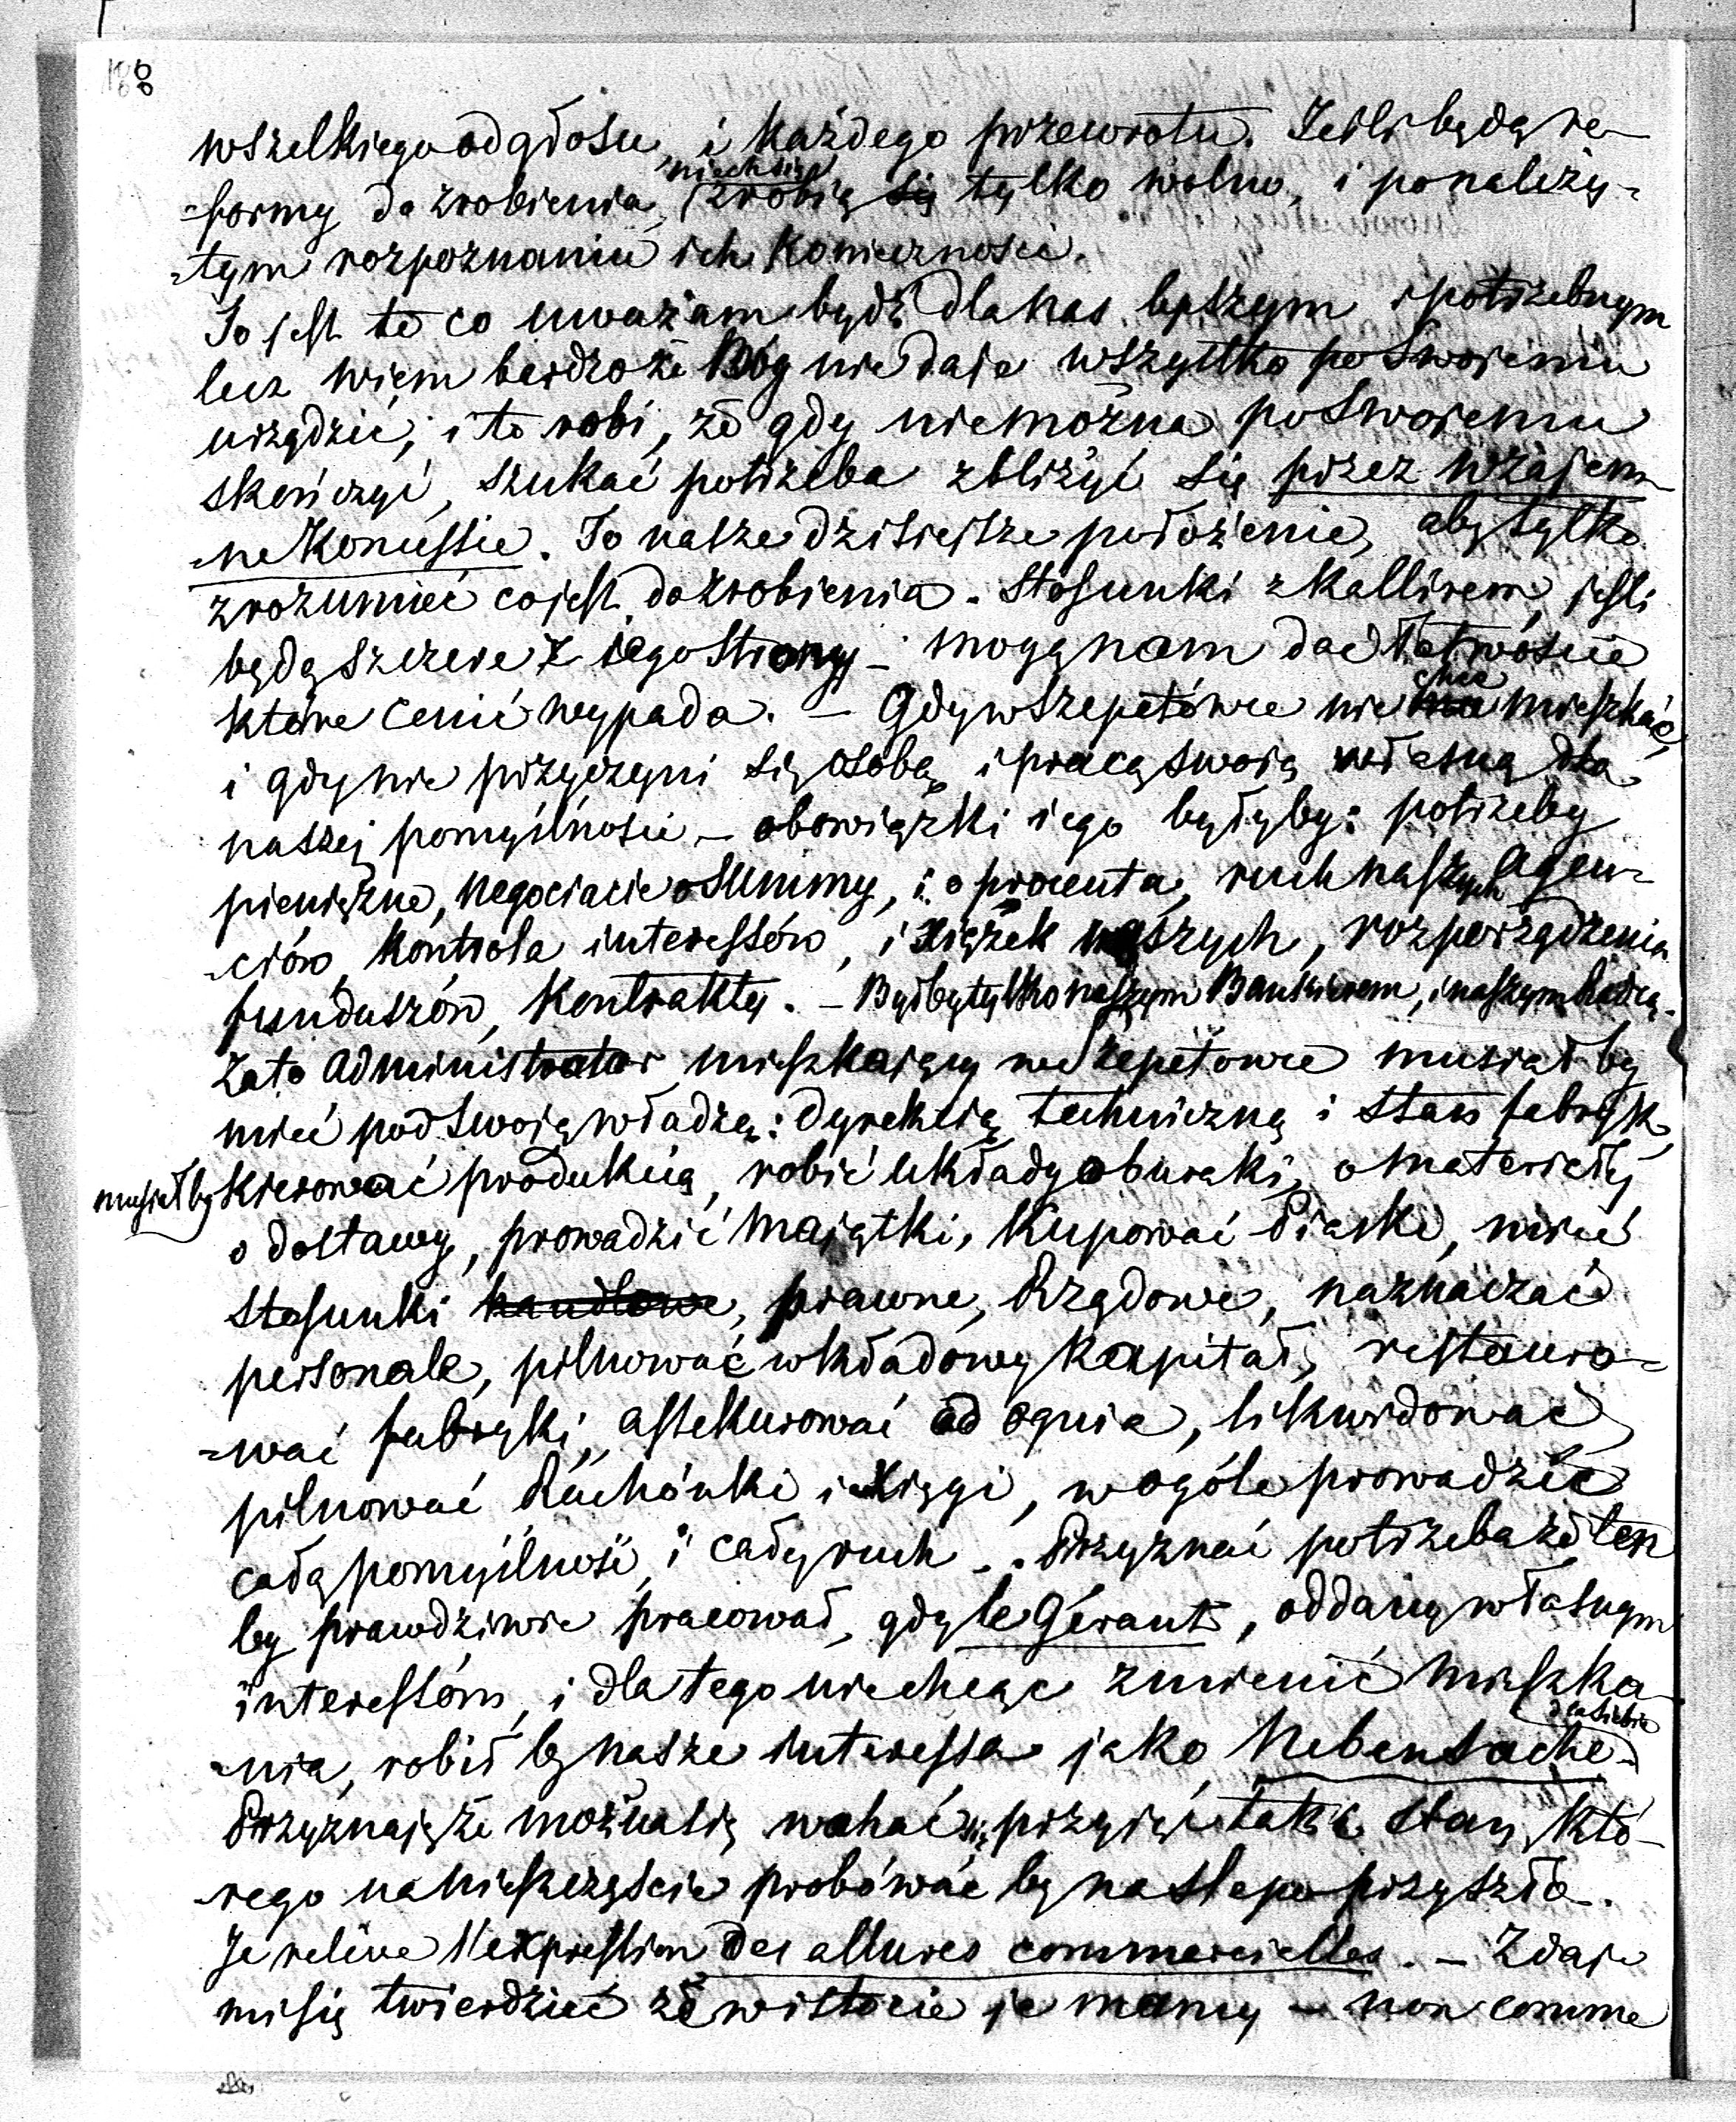 188
wszelkiego odgłosu, i każdego przewrotu. Jeśli będą re-
-formy do zrobienia, niech się zrobią się tylko wolno, i po należy-
-tym rozpoznaniu ich konieczności.
To jest to co uważam bydź dla nas lepszym i potrzebnym
lecz wiem bardzo że Bóg nie daje wszystko po swojemu
urządzić, i to robi, że gdy niemożna po swojemu
skończyć, szukać potrzeba zbliżyć się przez wzajem-
-ne Koncessie. To nasze dzisiejsze położenie, aby tylko
zrozumieć co jest do zrobienia. Stosunki z Kallirem, jeśli
będą szczere z iego strony – mogą nam dać łatwoście
które cenić wypada. – Gdy w Szepetówce nie ma chce mieszkać,
i gdy nie przyczyni się osobą i pracą swoią własną dla
naszej pomyślności – obowiązki iego byłyby: potrzeby
pieniężne, negociacie o summy, i o procenta, ruch naszych Agen-
-ciów, Kontrola interessów, i xiążek naszych, rozporządzenia
funduszów, Kontrakty. – Byłby tylko naszym Bankierem, i naszym Radcą.
Zato administrator mieszkaiący w Szepetowce musiał by
mieć pod swoią władzą: dyrekcią techniczną i stan fabryk,
musiałby kierować produkcią, robić układy o buraki, o materiały
o dostawy, prowadzić maiątki, kupować Piaski, mieć
stosunki handlowe, prawne, Rządowe, naznaczać
personale, pilnować wkładowy kapitał, restauro-
-wać fabryki, assekurować od ognia, likwidować
pilnować Rachónki i xięgi, wogóle prowadzić
całą pomyślność, i cały ruch. Przyznać potrzeba że ten
by prawdziwie pracował, gdy le Gérant, oddany własnym
interessom, i dla tego niechcąc zmienić mieszka-
-nia, robił by nasze interessa jako dla siebie Nebensache –
Przyznaję że można się wahać się przyjąć taki stan, któ-
-rego na nieszczęście probówać by na slepo przyszło.
Je relève l'expression des allures commercielles. – Zdaje
mi się twierdzić że w istocie je mamy – non comme